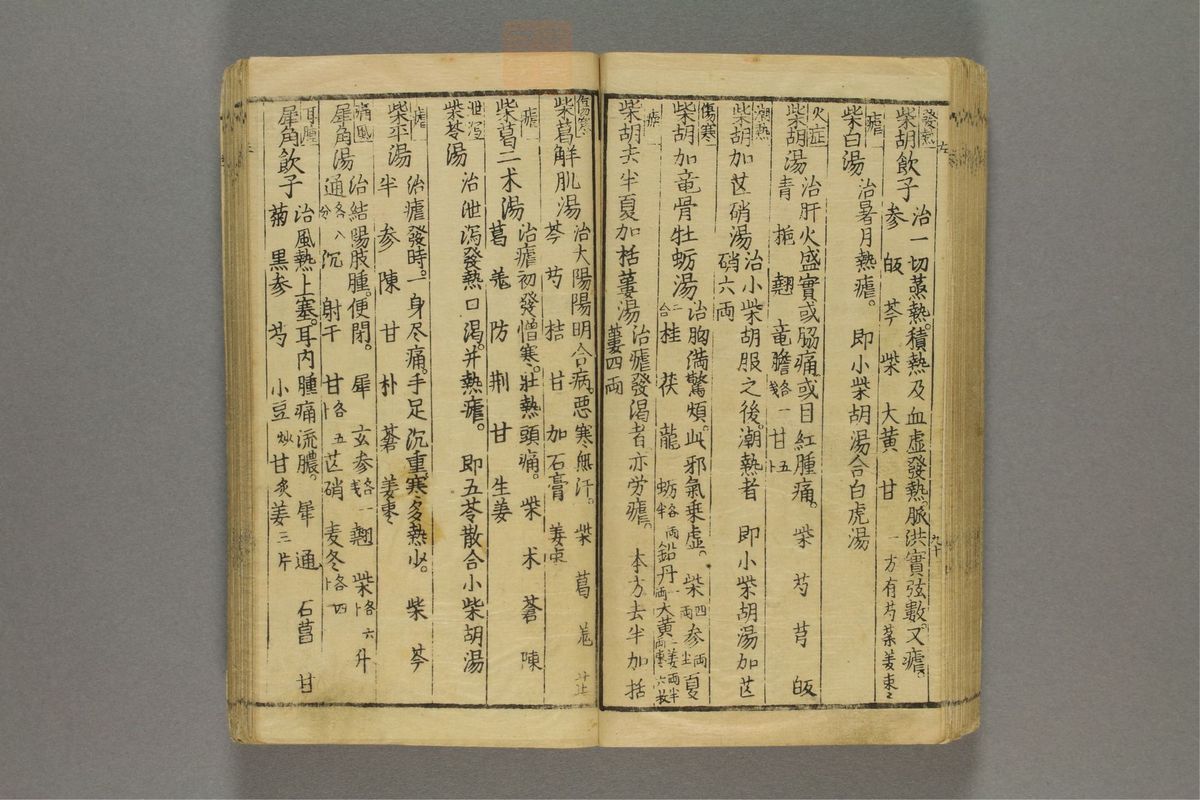 發熱
柴胡飲子
治一切蒸熱。積熱及血虛發熱。脈洪實弦數。又瘧。
参 皈 芩 柴 大黄 甘 一方有芍薬姜棗
瘧
柴白湯
治暑月熱瘧。 即小柴胡湯合白虎湯
火症
柴胡湯
治肝火盛實或脇痛。或目紅腫痛。 柴 芍 芎 皈
青 梔 翹 竜膽各一戋 甘五卜
潮熱
柴胡加芒硝湯
治小柴胡服之後。潮熱者 即小柴胡湯加芒
硝六両
傷寒
柴胡加竜骨牡蛎湯
治胸満驚煩。此邪氣乗虚。 柴四両 参 夏
桂 茯 龍 蛎 鉛丹 大黄
瘧
柴胡去半夏加栝蔞湯
治瘧發渇者亦労瘧。 本方去半加括
蔞四両
傷寒
柴葛解肌湯
治大陽陽明合病。悪寒無汗。 柴 葛 羗 芷
芩 芍 桔 甘 加石膏 姜
瘧
柴葛二术湯
治瘧初發憎寒。壮熱頭痛。 柴 术 蒼 陳
葛 羗 防 荆 甘 生姜
泄瀉
柴苓湯
治泄瀉發熱口渇。并熱瘧。 即五苓散合小柴胡湯
瘧
柴平湯
治瘧發時。一身尽痛。手足沉重。寒多熱少。 柴 芩
半 参 陳 甘 朴 蒼 姜棗
痛風
犀角湯
治結陽肢腫。便閉。 犀 玄参各一戋 翹 柴各六卜 升
通各八分 沉 射干 甘各五卜 芒硝 麦冬各四卜
耳腫
犀角飲子
治風熱上塞。耳内腫痛流膿。 犀 通 石菖 甘
菊 黒参 芍 小豆炒 甘炙 姜三片